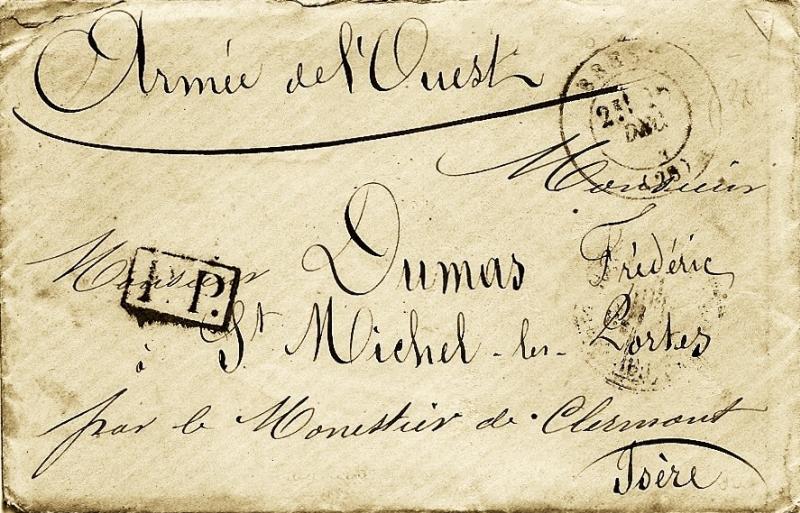 Armée de l'Ouest
Monsieur
Monsieur Dumas Frédéric
P.P.
à St Michel-les-Portes
par le Monestier de Clermont
Isère